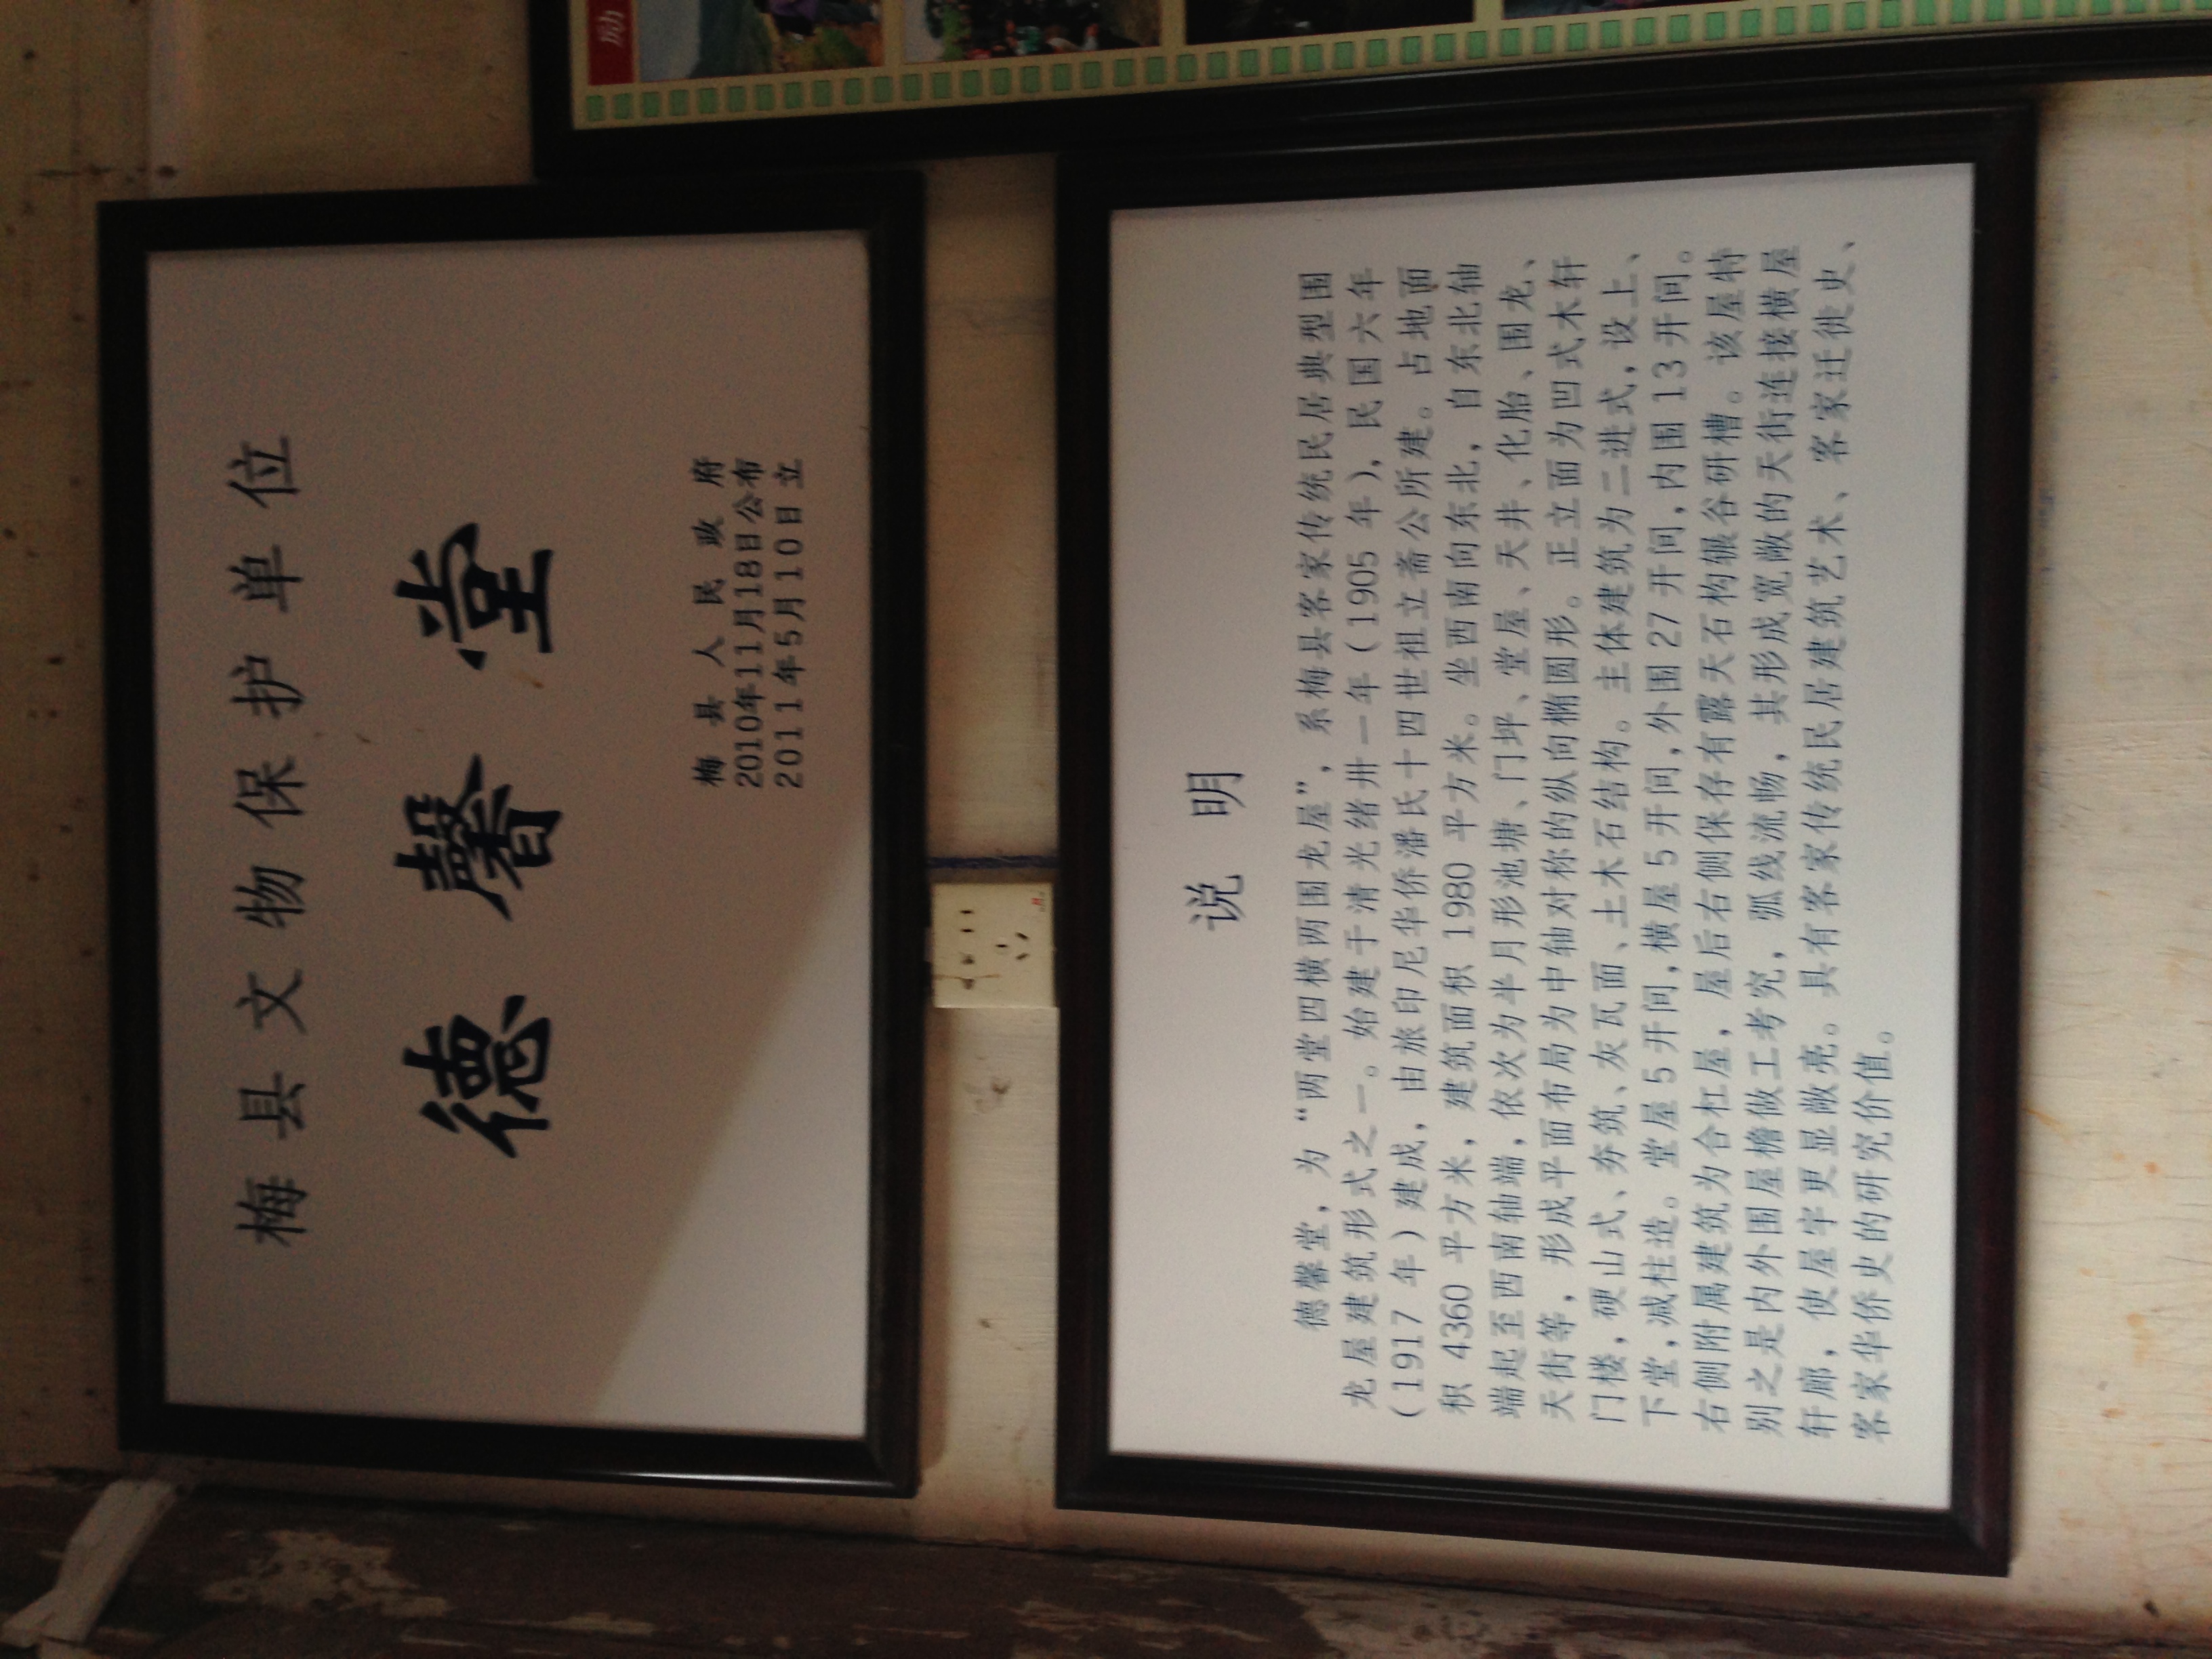 梅县文物保护单位
德馨堂
梅县人民政府
2010年11月18日公布
2011年5月10日立
说明
德馨堂，为“两堂四横两围龙屋”，系梅县客家传统民居典型围
龙屋建筑形式之一。始建于清光绪卅一年（1905年），民国六年
（1917年）建成，由旅印尼华侨潘氏十四世祖立斋公所建。占地面
积 4360 平方米，建筑面积 1980 平方米。坐西南向东北，自东北轴
端起至西南轴端，依次为半月形池塘、门坪、堂屋、天井、化胎、围龙、
天街等，形成平面布局为中轴对称的纵向椭圆形。正立面为凹式木轩
门楼，硬山式、夯筑、灰瓦面、土木石结构。主体建筑为二进式，设上、
下堂，减柱造。堂屋5开间，横屋5开间，外围27开间，内围13开间。
右侧附属建筑为合杠屋，屋后右侧保存有露天石构辗谷研槽。该屋特
别之是内外围屋檐做工考究，弧线流畅，其形成宽敞的天街连接横屋
轩廊，使屋宇更显敞亮。具有客家传统民居建筑艺术、客家迁徙史、
客家华侨史的研究价值。
励